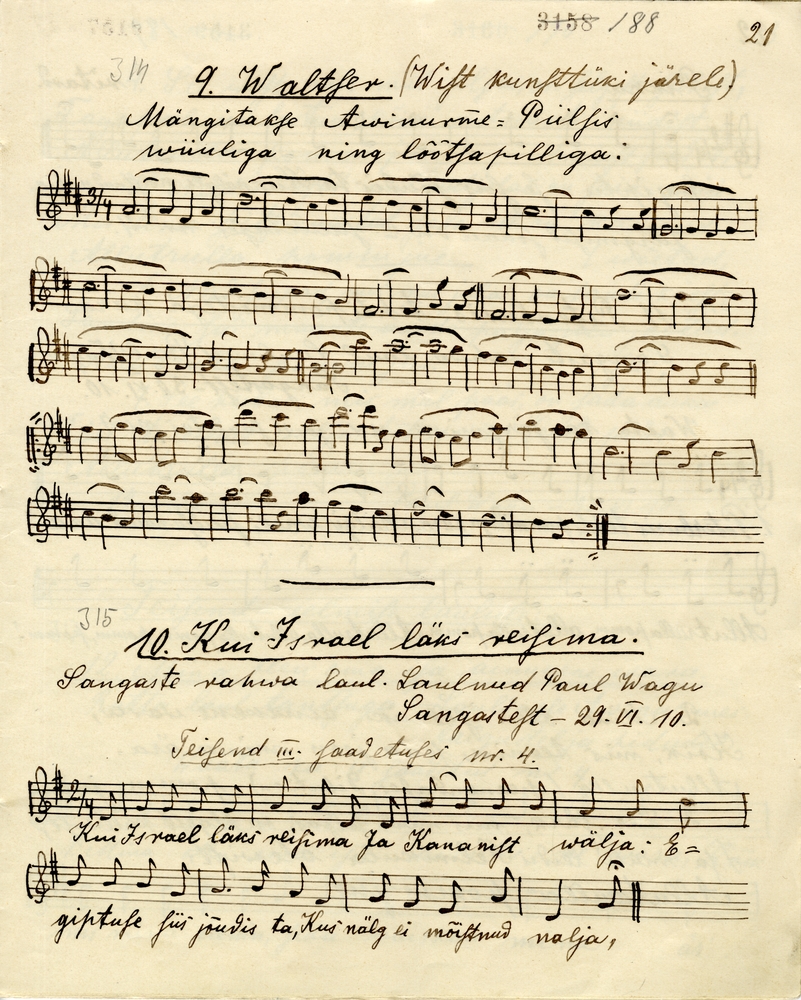 3158 /88
21
314
9. Waltser. (Wist kunsttüki järele)
Mängitakse Awinurme= Piilsis
wiiuliga ning lõõtsapilliga:
3/4
315
10. Kui Israel läks reisima.
Sangaste rahwa laul. Laulnud Paul Wagu
Sangastest – 29. VI. 10.
Teisend III. saadetuses nr. 4.
2/4
Kui Israel läks reisima Ja Kananist wälja: E=
giptuse siis jõudis ta, Kus nälg ei mõistnud nalja,